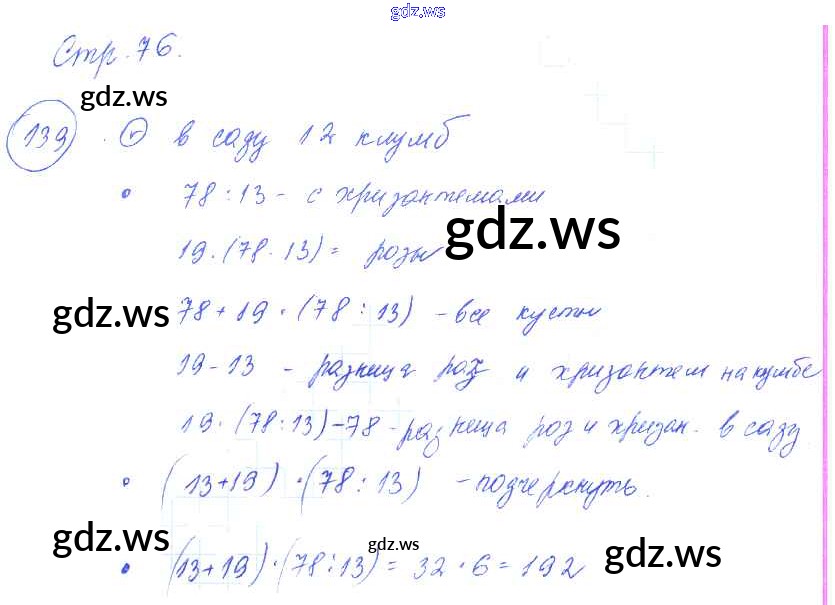 gdz.ws
Стр. 76.
gdz.ws
139 . в саду 12 клумб
• 78 : 13 - с хризантемами
19 · (78 · 13) = розы
gdz.ws
gdz.ws
78 + 19 · (78 : 13) - все кусты
19 - 13 - разница роз и хризантем на кумбе
19 · (78 : 13) - 78 - разнеща роз и хризан. в саду
• (13 + 19) · (78 : 13) - подчеркнуть.
gdz.ws
gdz.ws
gdz.ws
gdz.ws
• (13 + 19) · (78 : 13) = 32 · 6 = 192